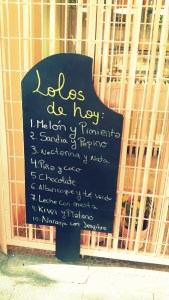 Lolos
de hoy:
1. Melón y Pimiento
2. Sandía y Pepino
3. Nectarina y Nata
4. Pera y coco
5. Chocolate
6. Albaricoque y té verde
7. Leche con
9. Kiwi y Platano
10. Naranja con Jengibre